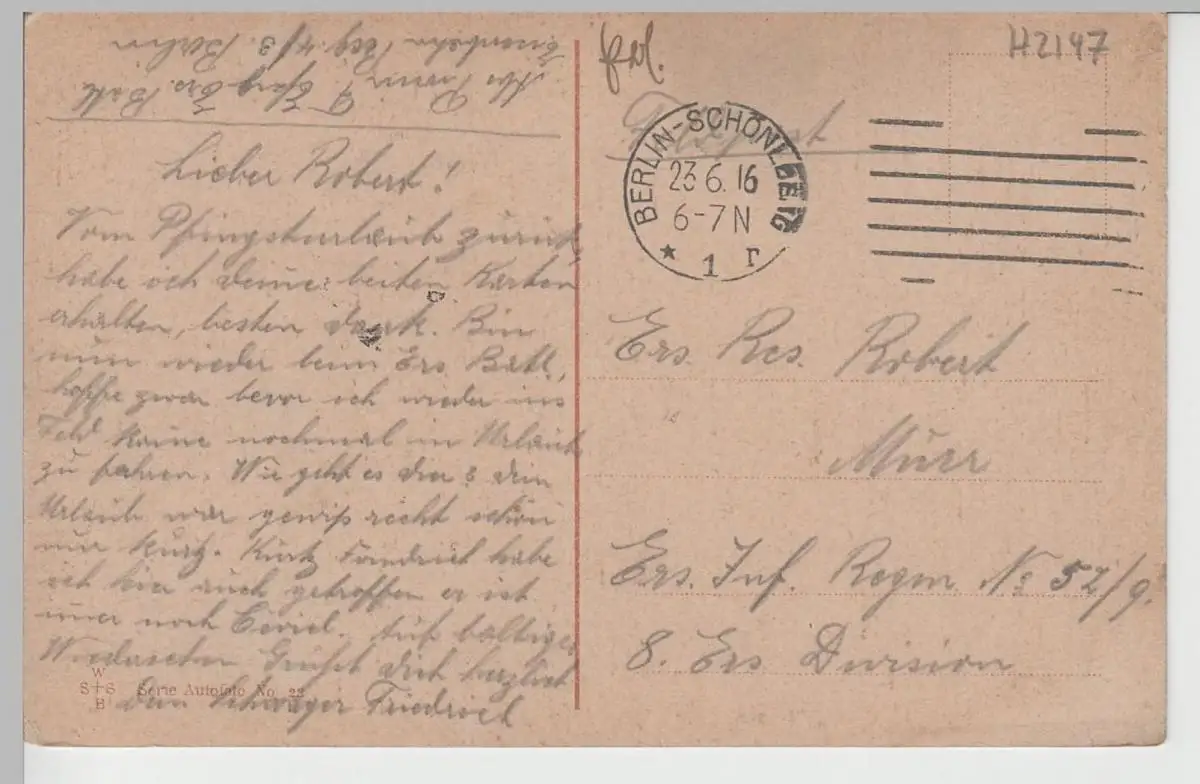 Lieber Robert!
Vom Pfingsturlaub zurück,
habe ich deine beiten Karten
erhalten, besten dank. Bin
nun wieder beim Ers. Batl.,
hoffe zwar bevor ich wieder ins
Feld komme nochmal in Urlaub
zu fahren. Wie geht es dir? dein
Urlaub war gewiß recht schön
nur kurz. habe
ich hier auch getroffen er ist
imer noch Civiel. Auf baltiges
Wiedersehn Grüßt dich herzlich
dein Schwager Friedrich
W
S+S
B
Serie Autofoto No. 23
Eisenbahn Reg. No 3. Berlin
Ers. Batl
H2147
Feldpost
BERLIN-SCHÖNEBERG
23.6.16
6-7N
* 1 r
Ers. Res. Robert
Murr
Ers. Inf. Regm No 52/9.
8. Ers Division